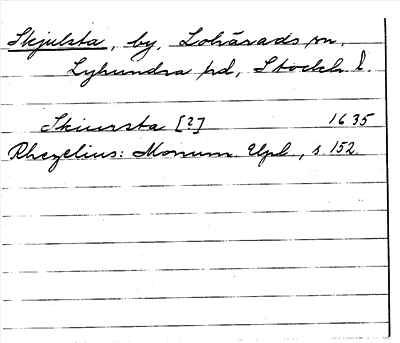 Skjulsta, by, Lohärads sn,
Lyhundra hd, Stockh. l.
Skiursta [?] 1635
Rhezelius: Monum. Upl., s. 152.